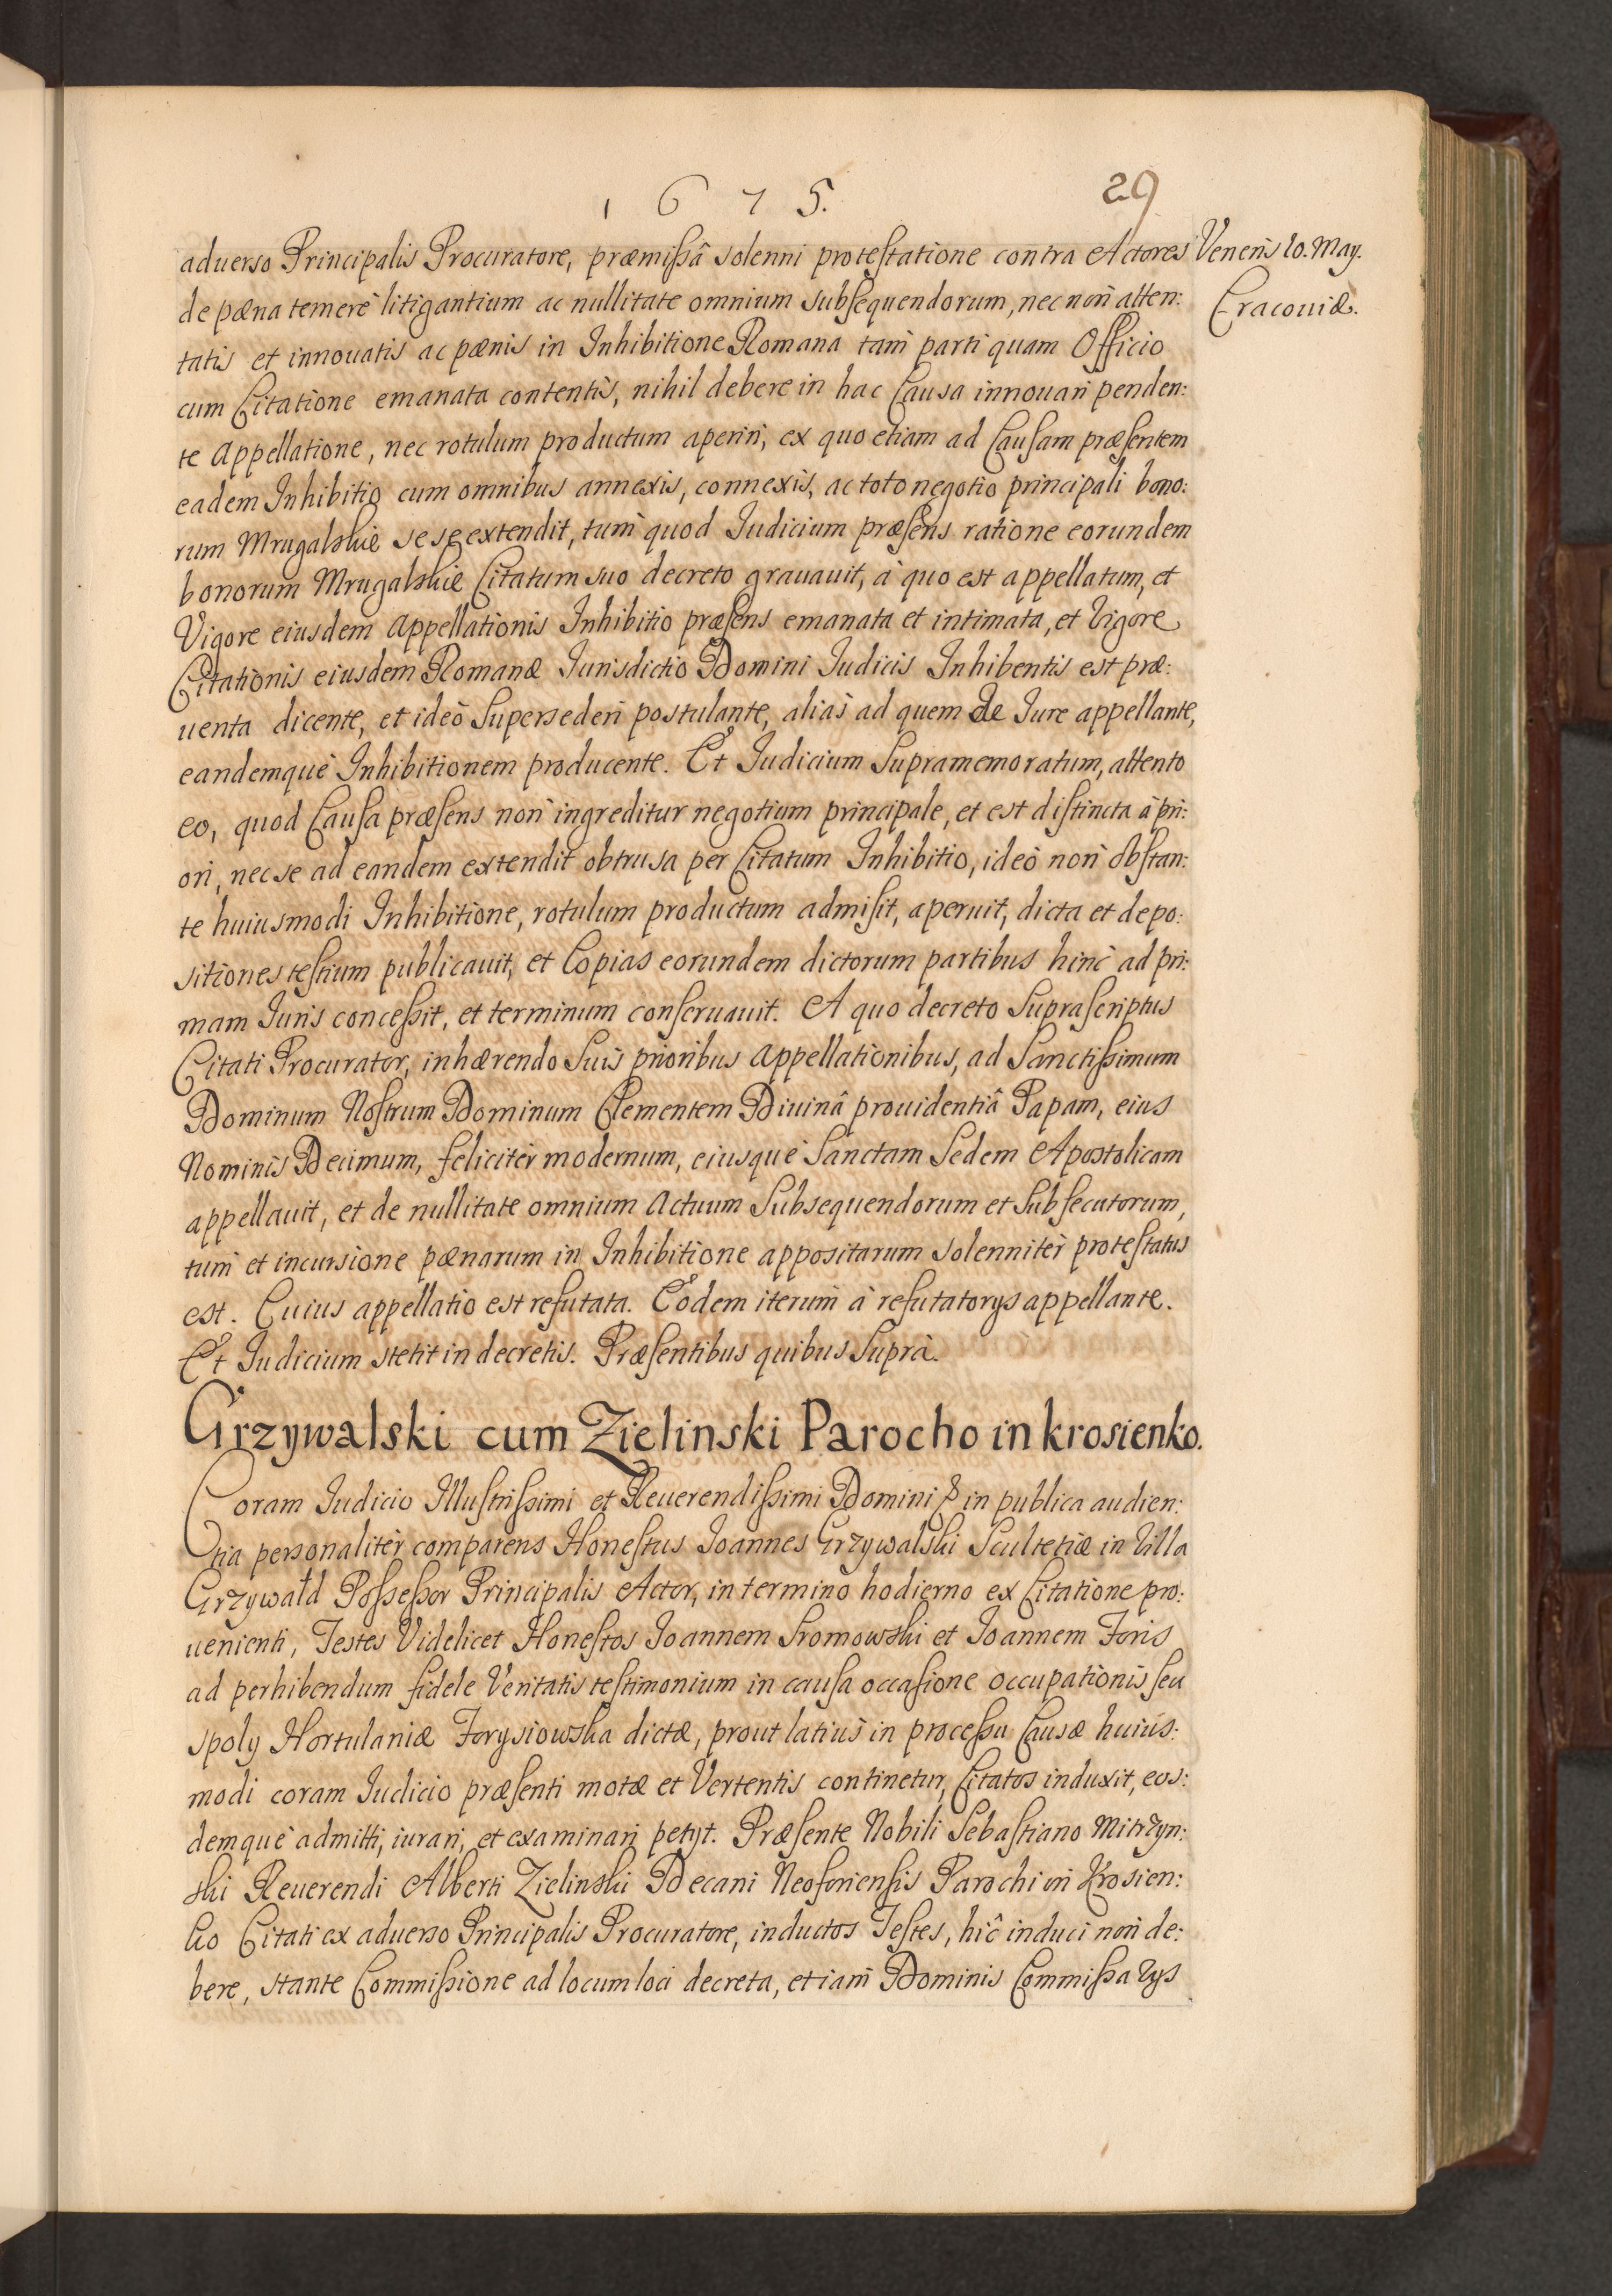 1675.
29
aduerso Principalis Procuratore, præmissâ solenni protestatione contra Actores
Veneris 10. May.
Cracouiæ.
de pæna temerè litigantium ac nullitate omnium subsequendorum, nec non atten:
tatis et innouatis ac pænis in Inhibitione Romana tam parti quam Officio
cum Citatione emanata contentis, nihil debere in hac Causa innouari penden:
te Appellatione, nec rotulum productum aperiri, ex quo etiam ad Causam præsentem
eadem Inhibitio cum omnibus annexis, connexis, ac toto negotio principali bono:
rum Mrugalskie se se extendit, tum quod Iudicium præsens ratione eorundem
bonorum Mrugalskie Citatum suo decreto grauauit, à quo est appellatum, et
Vigore eiusdem Appellationis Inhibitio præsens emanata et intimata, et Vigore
Citationis eiusdem Romanæ Iurisdictio Domini Iudicis Inhibentis est præ:
uenta dicente, et ideò Supersederi postulante, aliàs ad quem de Iure appellante,
eandemquè Inhibitionem producente. Et Iudicium Supramemoratum, attento
eo, quod Causa præsens non ingreditur negotium principale, et est distincta à pri:
ori, nec se ad eandem extendit obtrusa per Citatum Inhibitio, ideò non obstan:
te huiusmodi Inhibitione, rotulum productum admisit, aperuit, dicta et depo:
sitiones testium publicauit, et Copias eorundem dictorum partibus hinc ad pri:
mam Iuris concessit, et terminum conseruauit. A quo decreto Suprascriptus
Citati Procurator, inhærendo Suis prioribus Appellationibus, ad Sanctissimum
Dominum Nostrum Dominum Clementem Diuinâ prouidentiâ Papam, eius
Nominis Decimum, feliciter modernum, eiusquè Sanctam Sedem Apostolicam
appellauit, et de nullitate omnium Actuum Subsequendorum et Subsecutorum,
tum et incursione pænarum in Inhibitione appositarum solenniter protestatus
est. Cuius appellatio est refutata. Eodem iterum à refutatorys appellante.
Et Iudicium stetit in decretis. Præsentibus quibus Suprà.
Grzywalski cum Zielinski Parocho in krosienko.
Coram Iudicio Illustrissimi et Reuerendissimi Domini in publica audien:
tia personaliter comparens Honestus Ioannes Grzywalski Scultetiæ in Villa
Grzywałd Possessor Principalis Actor, in termino hodierno ex Citatione pro:
uenienti, Testes Videlicet Honestos Ioannem Sromowski et Ioannem Foris
ad perhibendum fidele Veritatis testimonium in causa occasione occupationis seu
spoly Hortulaniæ Forysiowska dictæ, prout latiùs in processu Causæ huius:
modi coram Iudicio præsenti motæ et Vertentis continetur, Citatos induxit, eos:
demquè admitti, iurari, et examinari petyt. Præsente Nobili Sebastiano Mitrzyn:
ski Reuerendi Alberti Zielinski Decani Neoforiensis Parochi in Krosien:
ko Citati ex aduerso Principalis Procuratore, inductos Testes, hîc induci non de:
bere, stante Commissione ad locum loci decreta, et iam Dominis Commissarys